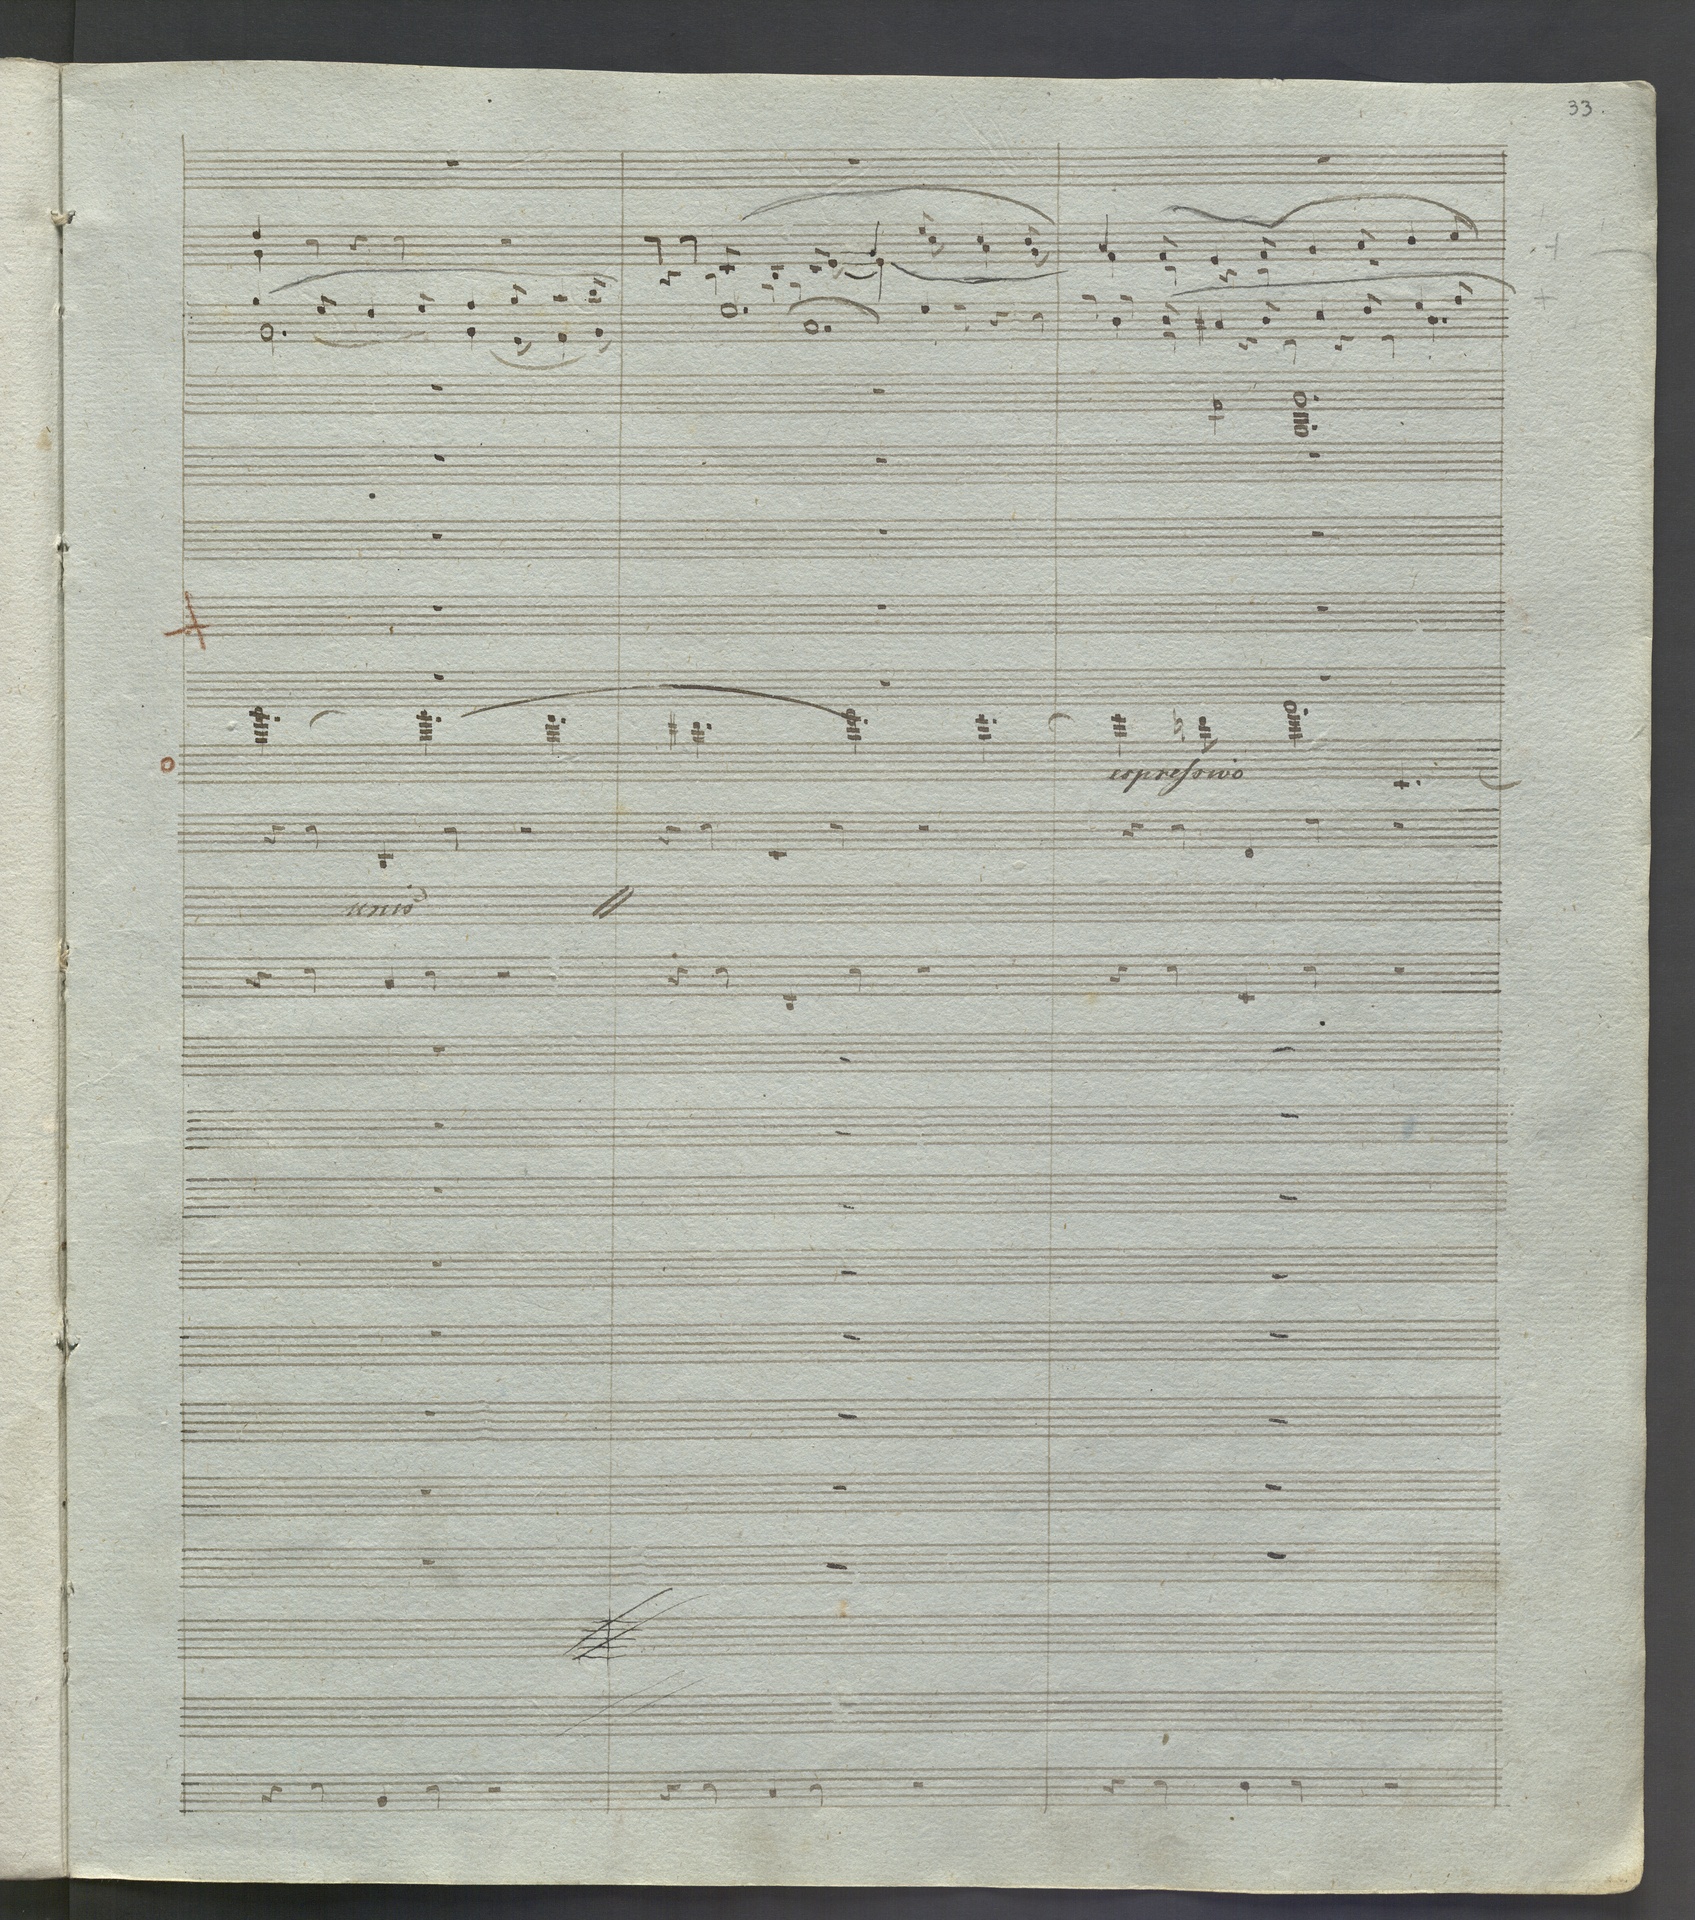 33.
espressivo
unis